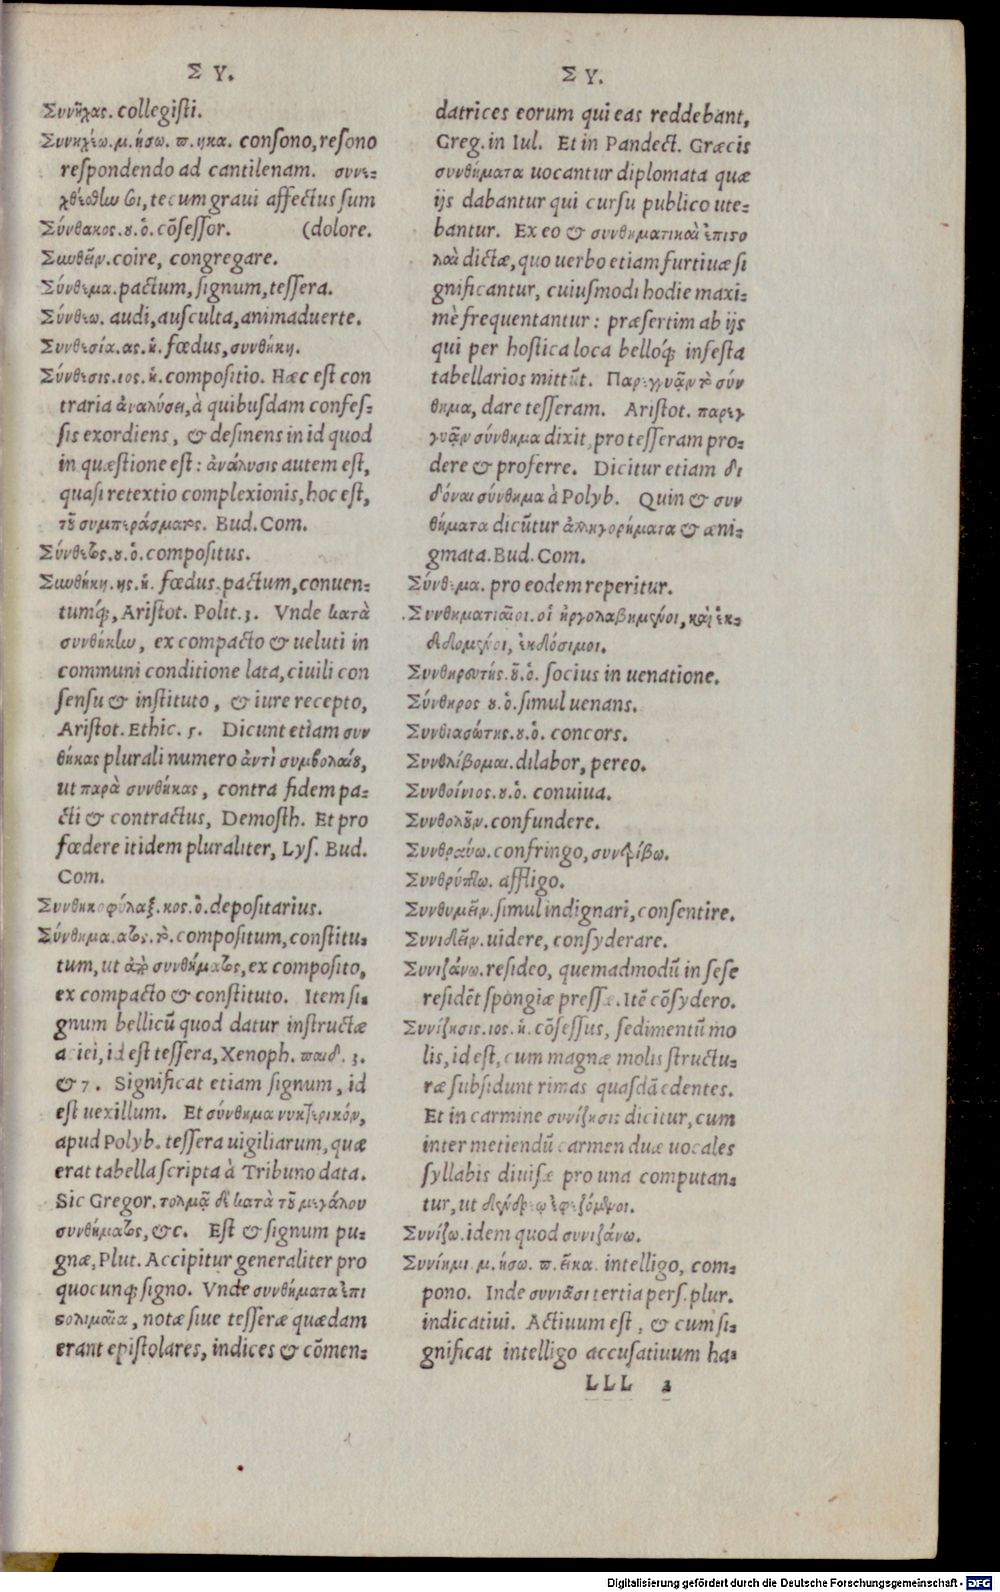 Σ Υ.
Συνῆχας. collegisti.
Συνηχέω. μ. ήσω. π. ηκα. consono, resono
respondendo ad cantilenam. συνε-
χθέσθω σοι, tecum graui affectus sum
Σύνθακος. ου. ὁ. cõsessor. (dolore.
Συνθεῖν. coire, congregare.
Σύνθεμα. pactum, signum, tessera.
Σύνθεω. audi, ausculta, animaduerte.
Συνθεσία. ας. ἡ. fœdus, συνθήκη.
Σύνθεσις. ιος. ἡ. compositio. Hæc est con
traria ἀναλύσει, à quibusdam confes-
sis exordiens, & desinens in id quod
in quæstione est: ἀνάλυσις autem est,
quasi retextio complexionis, hoc est,
τοῦ συμπεράσματος. Bud. Com.
Σύνθετος. ου. ὁ. compositus.
Συνθήκη. ης. ἡ. fœdus, pactum, conuen-
tumq́;, Aristot. Polit. 3. Vnde κατὰ
συνθήκην, ex compacto & ueluti in
communi conditione lata, ciuili con
sensu & instituto, & iure recepto,
Aristot. Ethic. 5. Dicunt etiam συν
θήκας plurali numero ἀντὶ συμβολαίου,
ut παρὰ συνθήκας, contra fidem pa-
cti & contractus, Demosth. Et pro
fœdere itidem pluraliter, Lys. Bud.
Com.
Συνθηκοφύλαξ. κος. ὁ. depositarius.
Σύνθημα. ατος. τὸ. compositum, constitu-
tum, ut ἀπὸ συνθήματος, ex composito,
ex compacto & constituto. Item si-
gnum bellicũ quod datur instructæ
aciei, id est tessera, Xenoph. παιδ. 3.
& 7. Significat etiam signum, id
est uexillum. Et σύνθημα νυκτερικόν,
apud Polyb. tessera uigiliarum, quæ
erat tabella scripta à Tribuno data.
Sic Gregor. τολμᾷ δὲ κατὰ τοῦ μεγάλου
συνθήματος, &c. Est & signum pu-
gnæ, Plut. Accipitur generaliter pro
quocunq; signo. Vnde συνθήματα ἐπι
στολιμαῖα, notæ siue tesseræ quædam
erant epistolares, indices & cõmen-
Σ Υ.
datrices eorum qui eas reddebant,
Greg. in Iul. Et in Pandect. Græcis
συνθήματα uocantur diplomata quæ
ijs dabantur qui cursu publico ute-
bantur. Ex eo & συνθηματικαὶ ἐπιστο
λαὶ dictæ, quo uerbo etiam furtiuæ si
gnificantur, cuiusmodi hodie maxi-
mè frequentantur: præsertim ab ijs
qui per hostica loca belloq́; infesta
tabellarios mittũt. Παρεγγυᾷν τὸ σύν
θημα, dare tesseram. Aristot. παρεγ
γυᾷν σύνθημα dixit, pro tesseram pro-
dere & proferre. Dicitur etiam δι
δόναι σύνθημα à Polyb. Quin & συν
θήματα dicũtur ἀλληγορήματα & æni-
gmata. Bud. Com.
Σύνθεμα. pro eodem reperitur.
Συνθηματιαῖοι. οἱ ἠργολαβημένοι, καὶ ἐκ-
διδομένοι, ἐκδόσιμοι.
Συνθηρευτής. οῦ. ὁ. socius in uenatione.
Σύνθηρος ου. ὁ. simul uenans.
Συνθιασώτης. ου. ὁ. concors.
Συνθλίβομαι. dilabor, pereo.
Συνθοίνιος. ου. ὁ. conuiua.
Συνθολοῦν. confundere.
Συνθραύω. confringo, συντρίβω.
Συνθρύπτω. affligo.
Συνθυμεῖν. simul indignari, consentire.
Συνιδεῖν. uidere, consyderare.
Συνιζάνω. resideo, quemadmodũ in sese
residẽt spongiæ pressæ. Itẽ cõsydero.
Συνίζησις. ιος. ἡ. cõsessus, sedimentũ mo
lis, id est, cum magnæ molis structu-
ræ subsidunt rimas quasdã edentes.
Et in carmine συνίζησις dicitur, cum
inter metiendũ carmen duæ uocales
syllabis diuisæ pro una computan-
tur, ut δενδρέῳ ἐφεζόμενοι.
Συνίζω. idem quod συνιζάνω.
Συνίημι μ. ήσω. π. εῖκα. intelligo, com-
pono. Inde συνιᾶσι tertia pers. plur.
indicatiui. Actiuum est, & cum si-
gnificat intelligo accusatiuum ha-
LLL 3
Digitalisierung gefördert durch die Deutsche Forschungsgemeinschaft - DFG